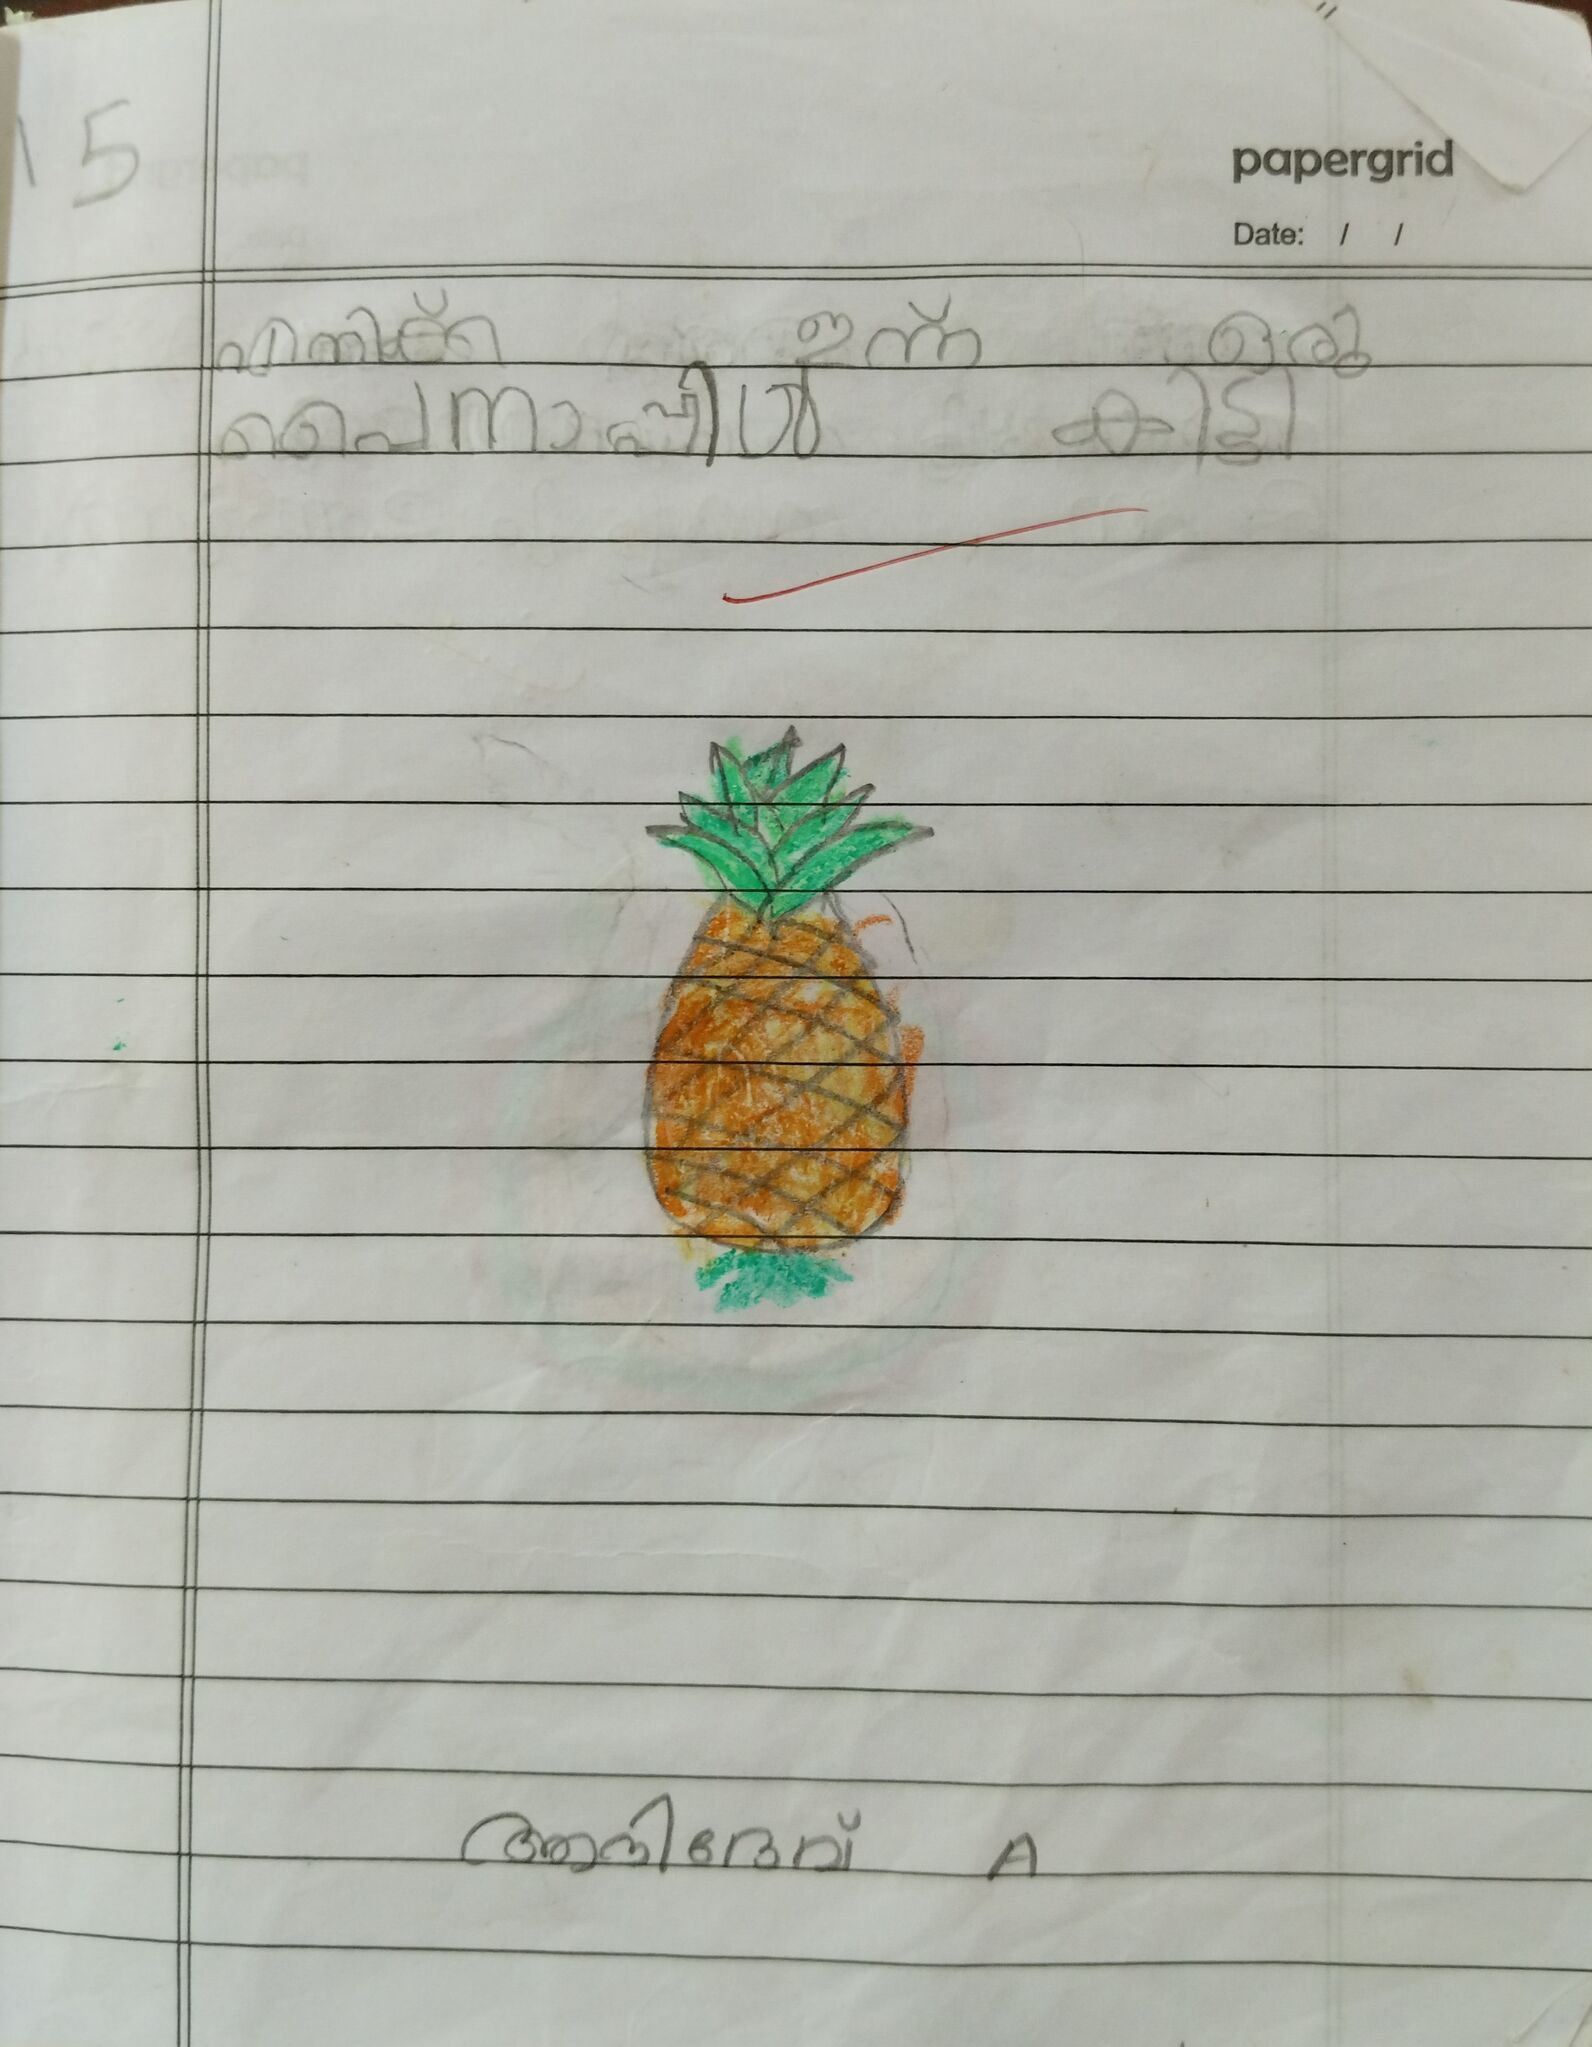 15
papergrid
Date: / /
എനിക്ക് ഇന്ന് ഒരു
പൈനാപ്പിൾ കിട്ടി
അനിദേവ് A